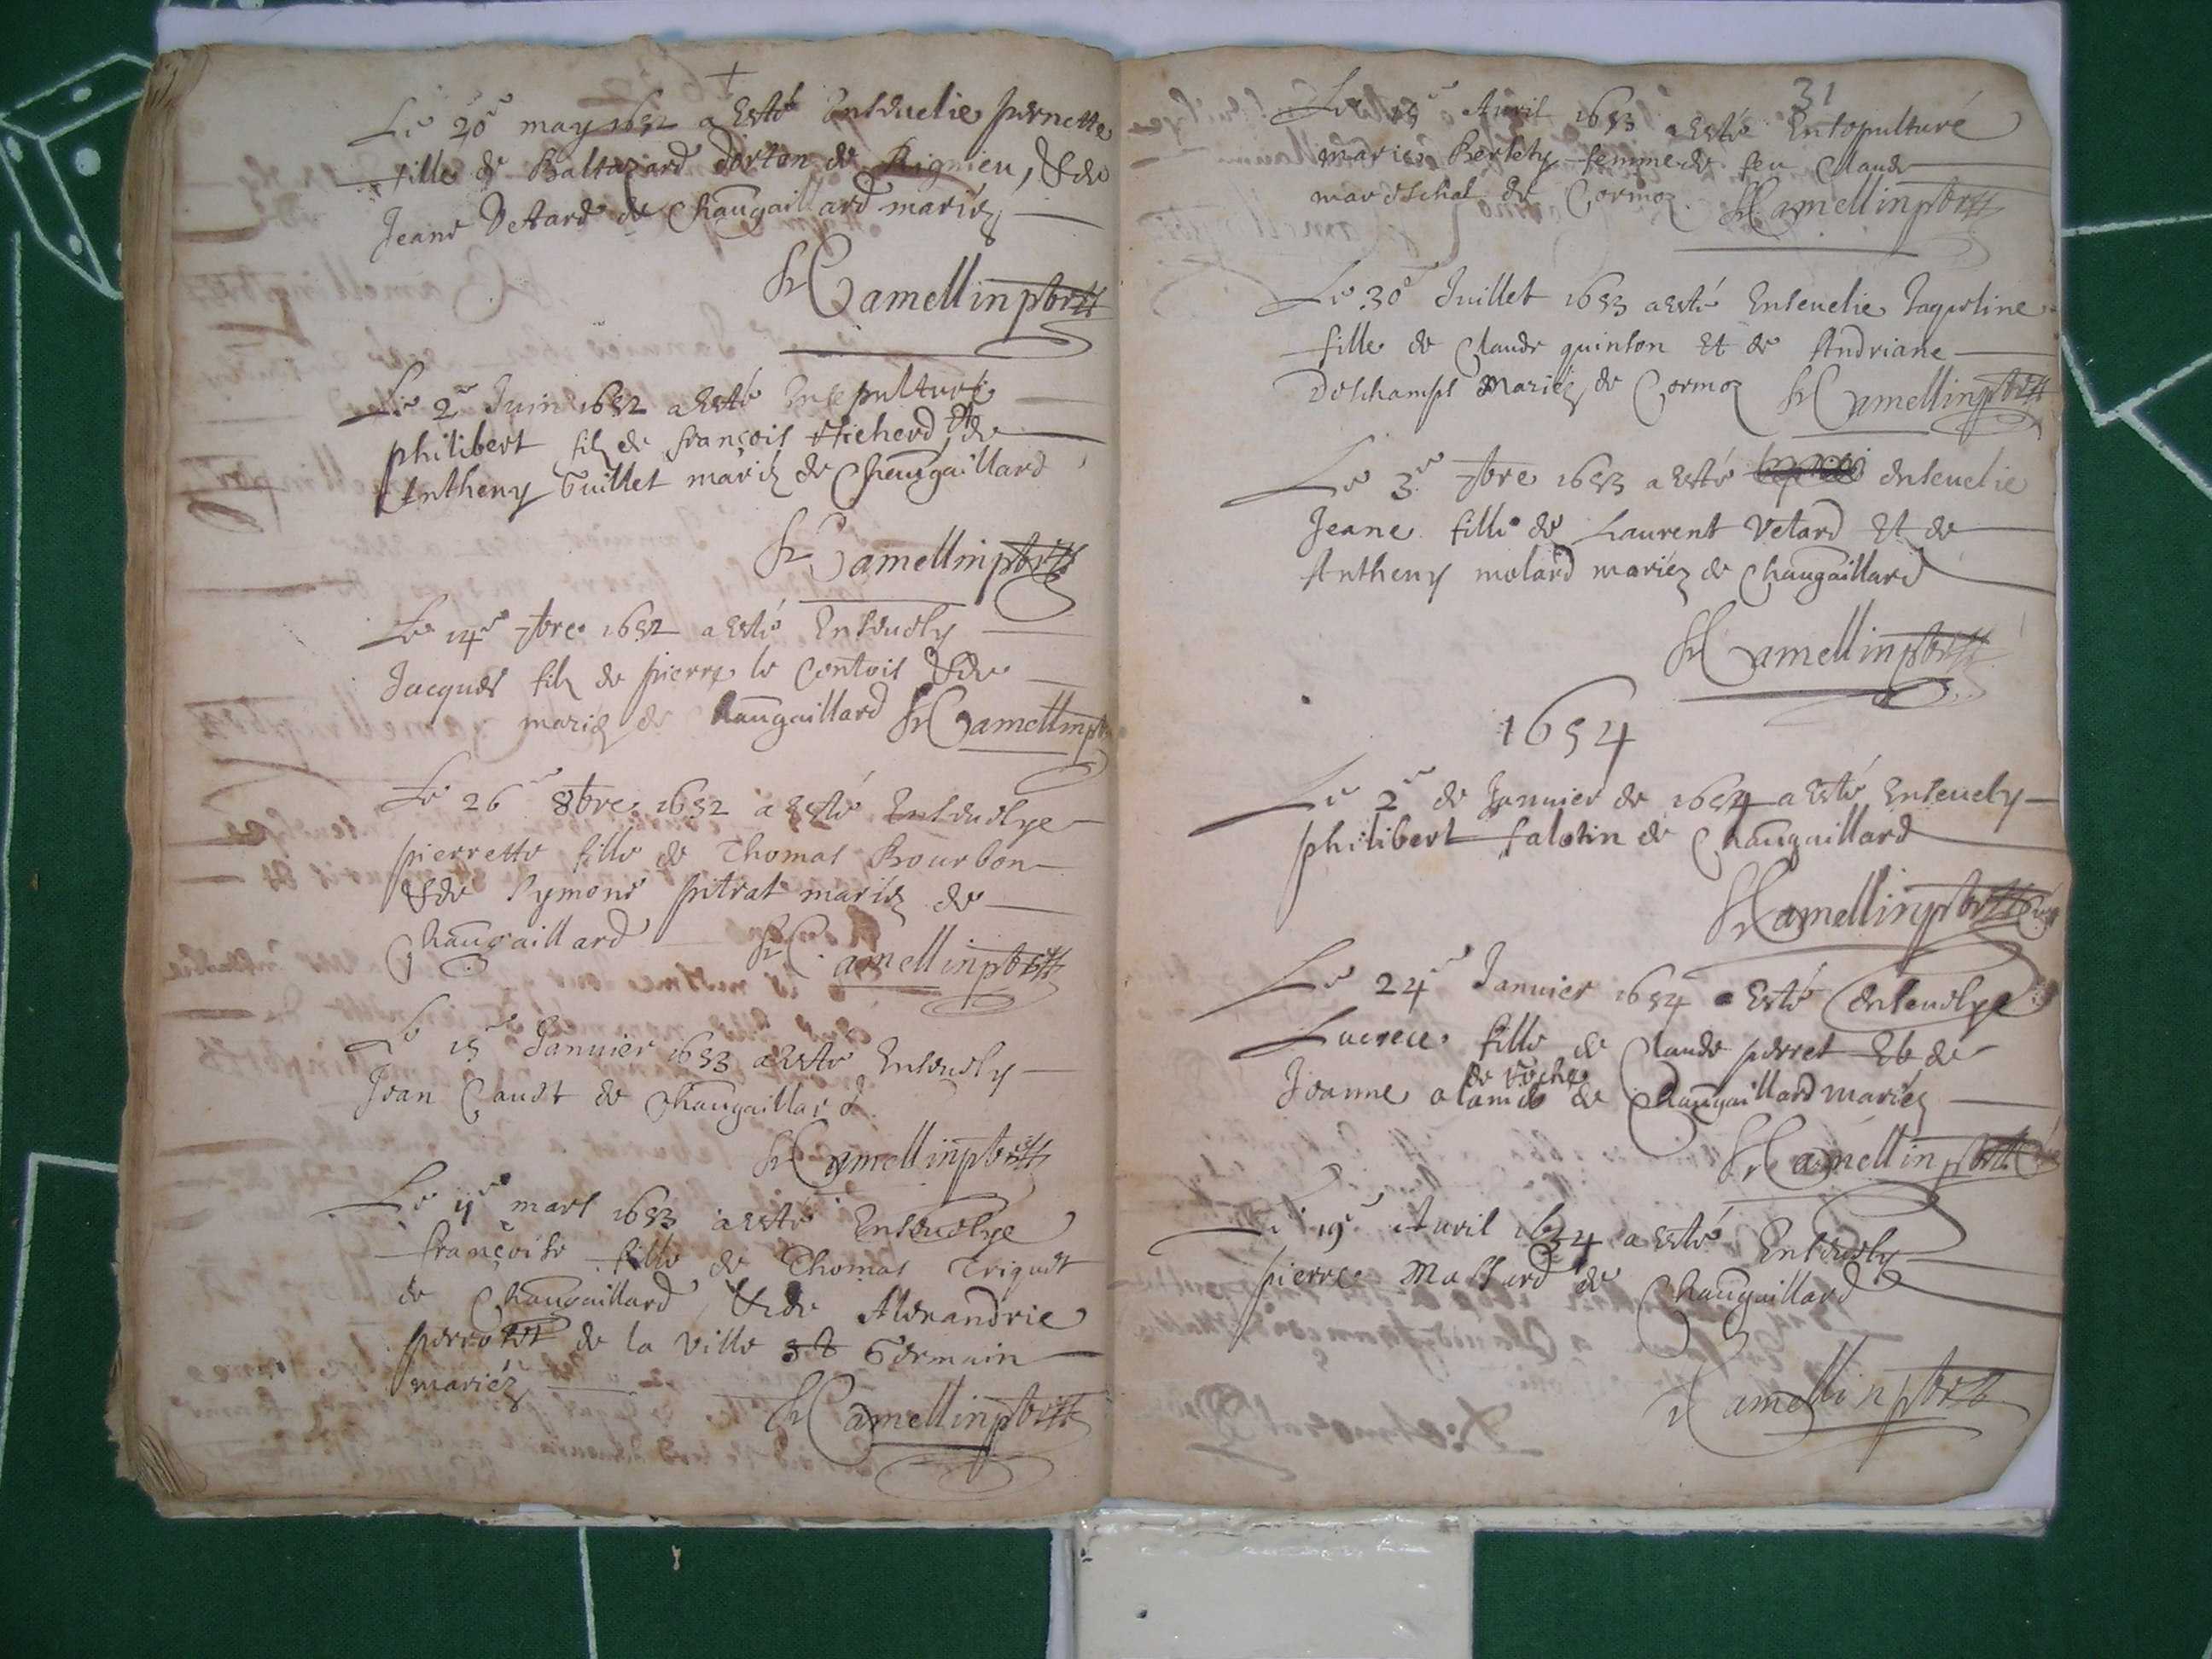 Le 20e may 1652 a Esté Enseuelie pernette
fille de Baltazard dorton de Rignieu, & de
Jeane Vetard de Chaũgaillard mariéz
Camellin pbre
Le 2e Juin 1652 a Esté Ensepulturé
philibert filz de françois Et de
Antheny Guillet mariéz de Chaũgaillard
Camellin pbre
Le 14e 7bre 1652 a Esté Enseuely
Jacques filz de pierre le Contois & de
mariéz de Chaũgaillard Camellin pbre
Le 26e 8bre 1652 a Esté Enseuelye
pierrette fille de Thomas Bourbon
& de Symone pitrat mariéz de
Chaũgaillard Camellin pbre
Le 15e Januier 1653 a Esté Enseuely
Jean de Chaũgaillard
Camellin pbre
Le 11e mars 1653 a Esté Enseuelye
françoise fille de Thomas Triquet
de Chaũgaillard & de Alexandrie
de la Ville St Germain
mariéz
Camellin pbre
31
Le Auril 1653 a Esté Ensepulturé
marie Berlety femme de feu Claude
mareschal de Cormoz Camellin pbre
Le 30e Juillet 1653 a Esté Enseuelie Jaqueline
fille de Claude quinson Et de Andriane
Deschamps Mariéz de Cormoz Camellin pbre
Le 3e 7bre 1653 a Esté enseuelie
Jeane fille de Laurent Vetard Et de
Antheny molard mariéz de Chaũgaillard
Camellin pbre
1654
Le 2e de Januier de 1654 a Esté Enseuely
philibert falotin de Chaũgaillard
Camellin pbre
Le 24e Januier 1654 a Esté Enseuelye
Lucrece fille de Claude perret Et de
de
Joanne de Chaũgaillard mariéz
Camellin pbre
Le 19e Auril 1654 a Esté Enseuely
pierre Massard de Chaũgaillard
Camellin pbre